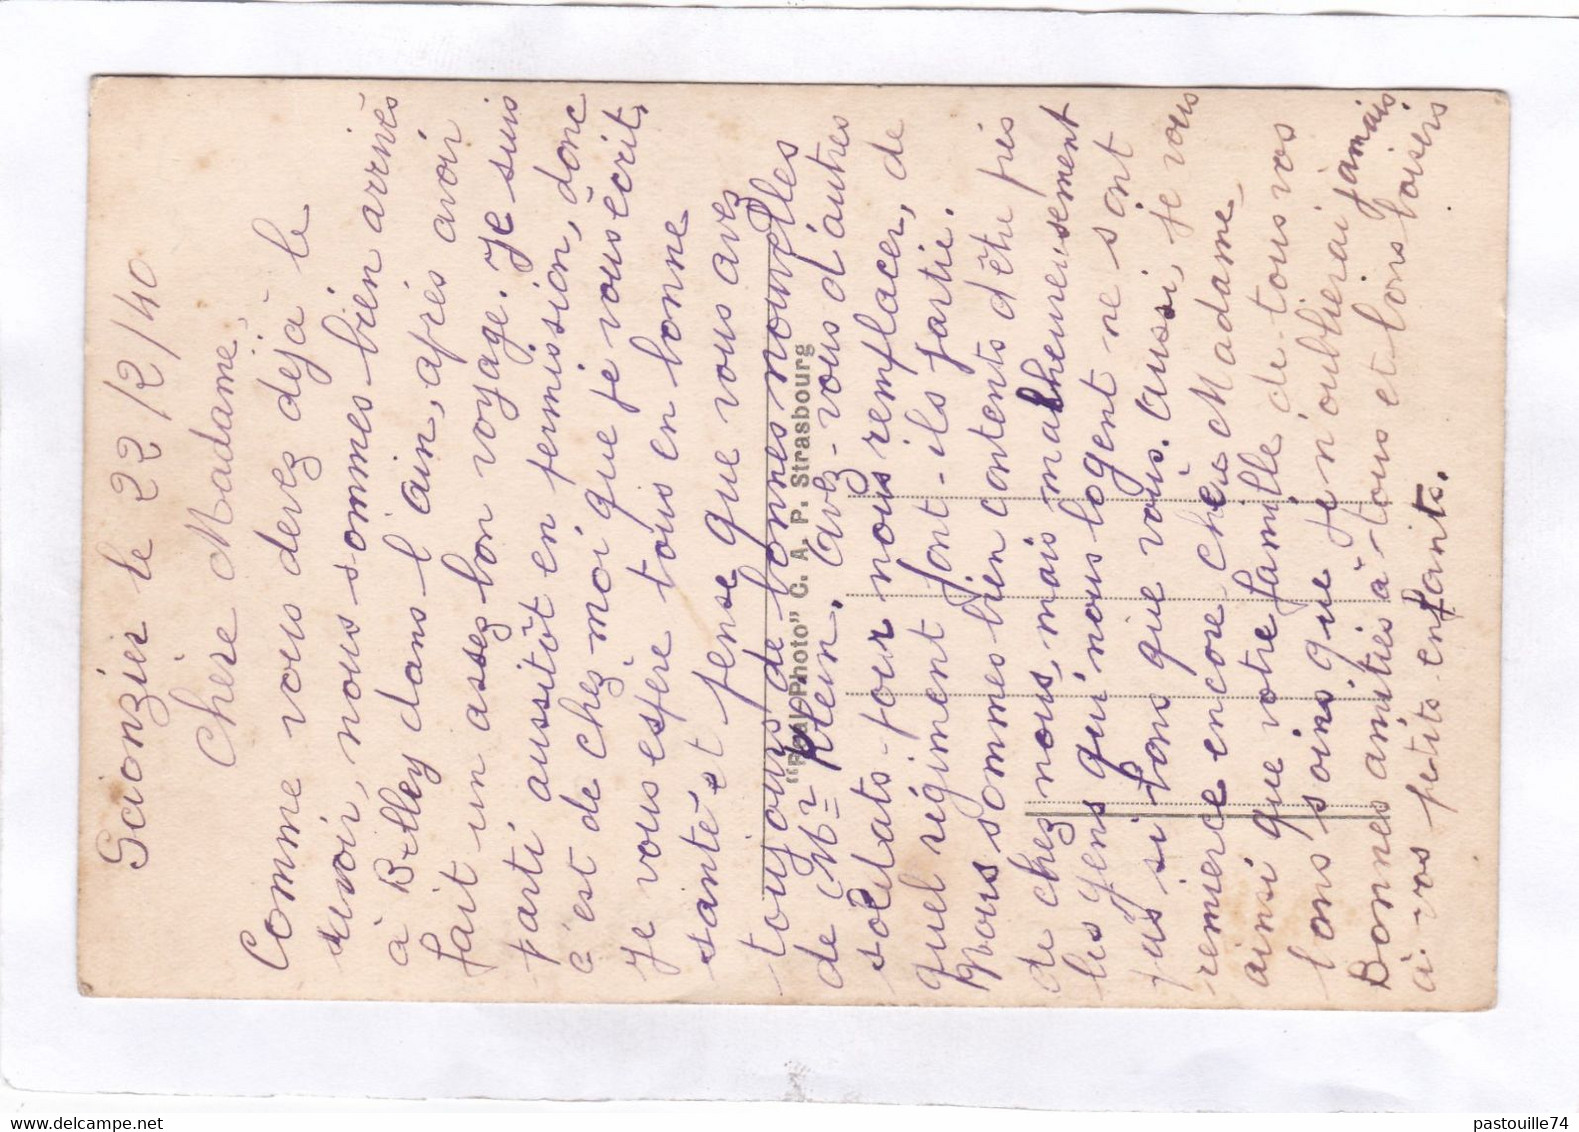 Scionzier le 22/2/40
Chère Madame
Comme vous devez déjà le
savoir, nous sommes bien arrivés
à Belley dans l'ain, après avoir
fait un assez bon voyage. Je suis
parti aussitôt en permission, donc
c'est de chez moi que je vous écrit.
Je vous espère tous en bonne
santé et pense que vous avez
toujours de bonnes nouvelles
de Mr
"Real Photo" C. A. P. Strasbourg
avez-vous d'autres
soldats pour nous remplacer, de
quel régiment font-ils partie.
Nous sommes bien contents d'être près
de chez nous, mais malheureusement
les gens qui nous logent ne sont
pas si bons que vous. Aussi, je vous
remercie encore chère Madame
ainsi que votre famille de tous vos
bons soins que je n'oublierai jamais
Bonnes amitiés à tous et bons baisers
à vos petits enfants.
www.delcampe.net
pastouille74